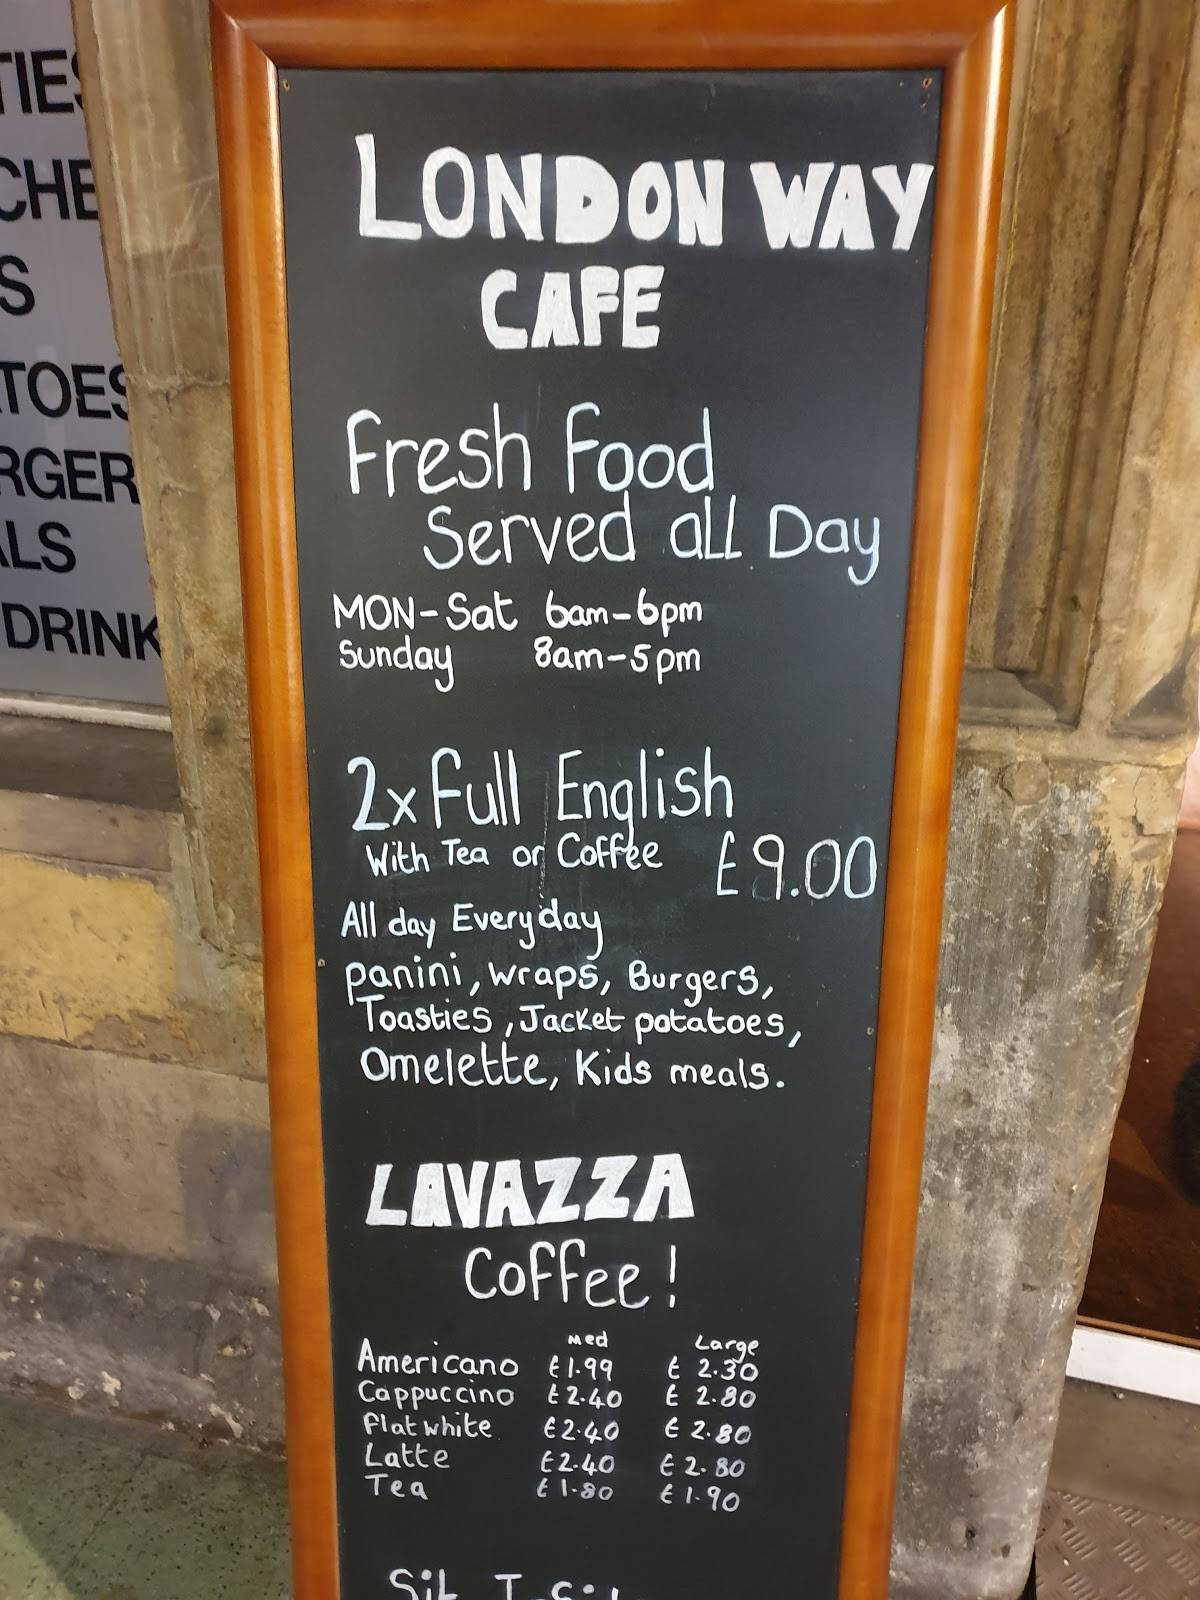 LONDON WAY
CAFE
Fresh Food
Served all Day
MON-Sat 6am-6pm
Sunday 8am-5pm
2x Full English
With Tea or Coffee £9.00
All day Everyday
panini, wraps, Burgers,
Toasties, Jacket potatoes,
Omelette, Kids meals.
LAVAZZA
Coffee!
Med Large
Americano £1.99 £2.30
Cappuccino £2.40 £2.80
Flat white £2.40 £2.80
Latte £2.40 £2.80
Tea £1.80 £1.90
DRINK